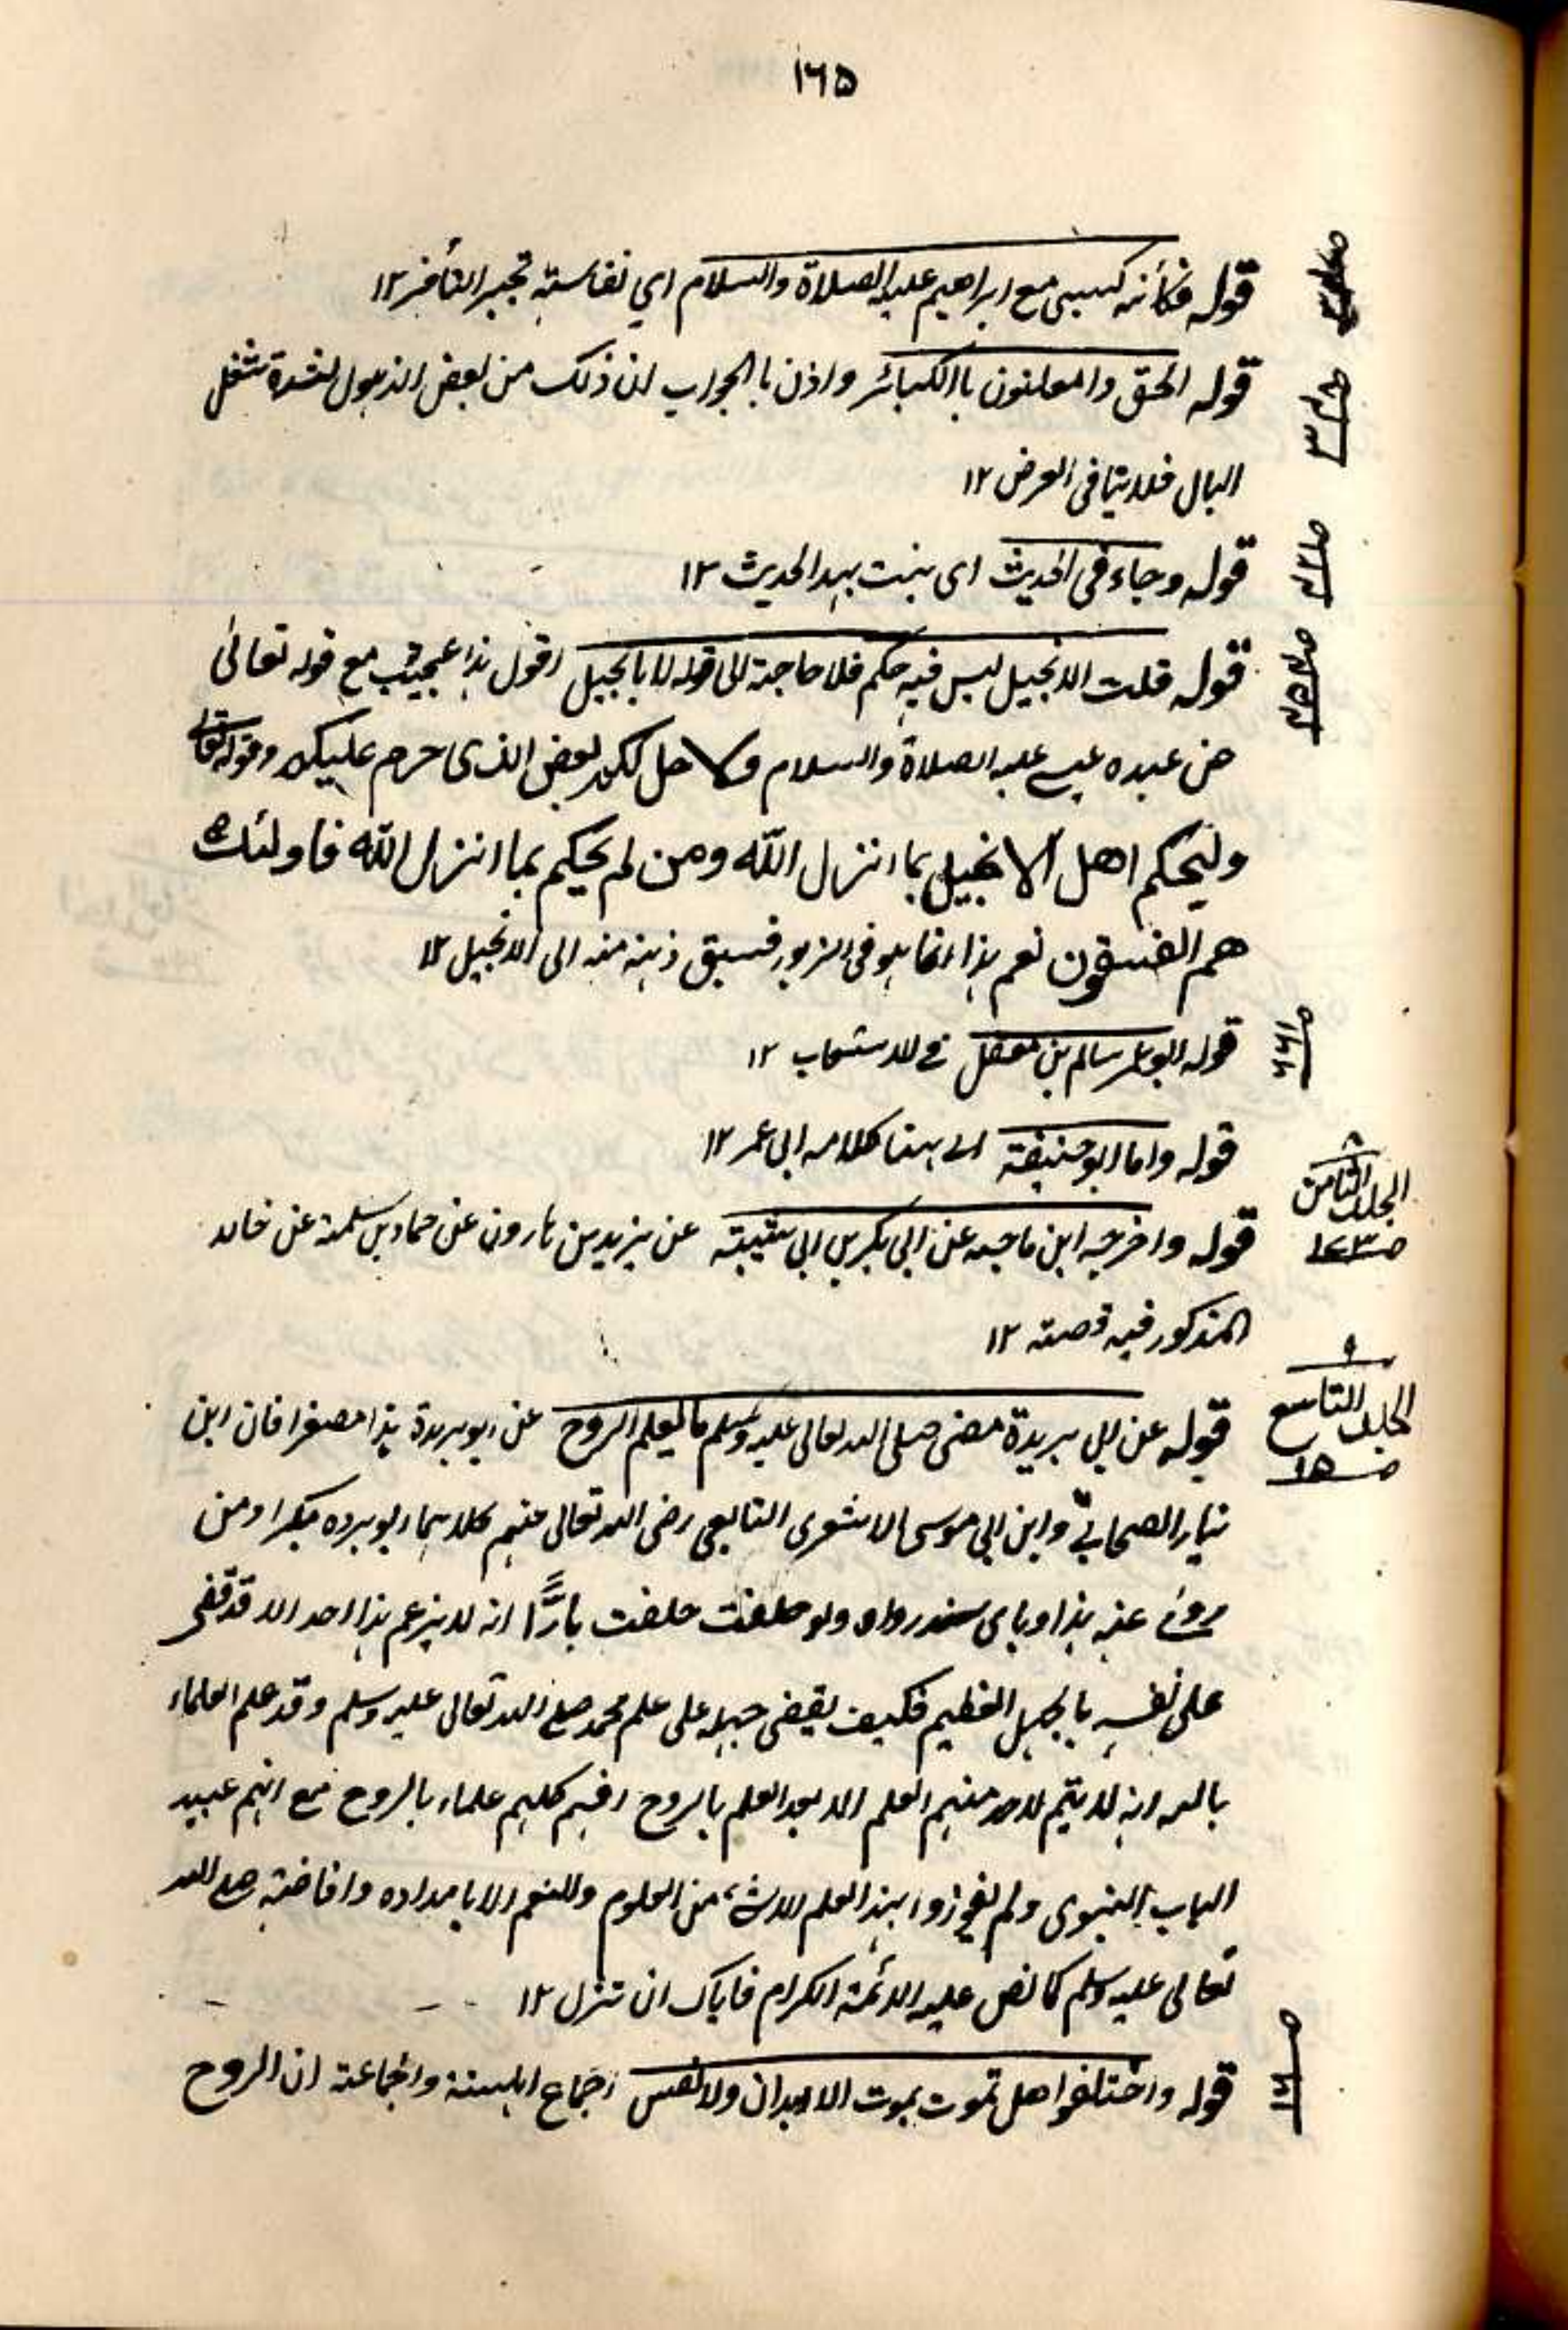 ١٦٥
قوله فكأنه كسبى مع ابراهيم عليه الصلاة والسلام اي نفاسته تجبر التأخر ١٢
قوله الحق والمعلنون باالكبائر واذن باالجواب ان ذلك من بعض الذهول لشدة شغل
البال فلا ينافى العرض ١٢
قوله وجاء فى الحديث اى يثبت بهذا الحديث ١٢
قوله قلت الانجيل ليس فيه حكم فلا حاجة الى قوله لا بالجيل اقول هذا عجيب مع قوله تعالى
عن عبده عيسے عليه الصلاة والسلام ولاحل لكم بعض الذى حرم عليكم وقوله تعالى
وليحكم اهل الانجيل بما انزل الله ومن لم يحكم بما انزل الله فاولئك
هم الفسقون نعم هذا انما هو فى الزبور فسبق ذهنه منه الى الانجيل ١٢
قوله ابو عمر سالم بن معقل فے الاستيعاب ١٢
قوله واما ابو حنيفة الے هنا كلامه ابى عمر ١٢
الجلد الثامن
ص ١٢٣
قوله واخرجه ابن ماجه عن ابى بكر بن ابى شيبة عن يزيد بن هارون عن حماد بن سلمة عن خالد
المذكور فيه قصته ١٢
الجلد التاسع
ص ١٥
قوله عن ابى بريدة مضى صلى الله تعالى عليه وسلم ما يعلم الروح عن ابو بريدة هذا مصغرا فان ابن
نيار الصحابي وابن ابى موسى الاشعرى التابعى رضى الله تعالى عنهم كلاهما ابو برده مكبرا ومن
روى عنه هذا وباى سند رواه ولو حلفت حلفت بارًّا انه لا يزعم هذا احد الا قد قضى
على نفسه بالجهل العظيم فكيف يقضى جهله على علم محمد صلے الله تعالى عليه وسلم وقد علم العلماء
بالله انه لا يتم لاحد منهم العلم الا بعد العلم بالروح افهم كلهم علماء بالروح مع انهم عبيد
الباب النبوى ولم يفوزوا بهذا العلم ولا شئ من العلوم والنعم الا بامداده وافاضته صلے الله
تعالى عليه وسلم كما نص عليه الائمة الكرام فاياك ان تزل ١٢
ص ١٦
قوله واختلفوا هل تموت بموت الابدان والانفس اجماع اهلسنة والجماعة ان الروح